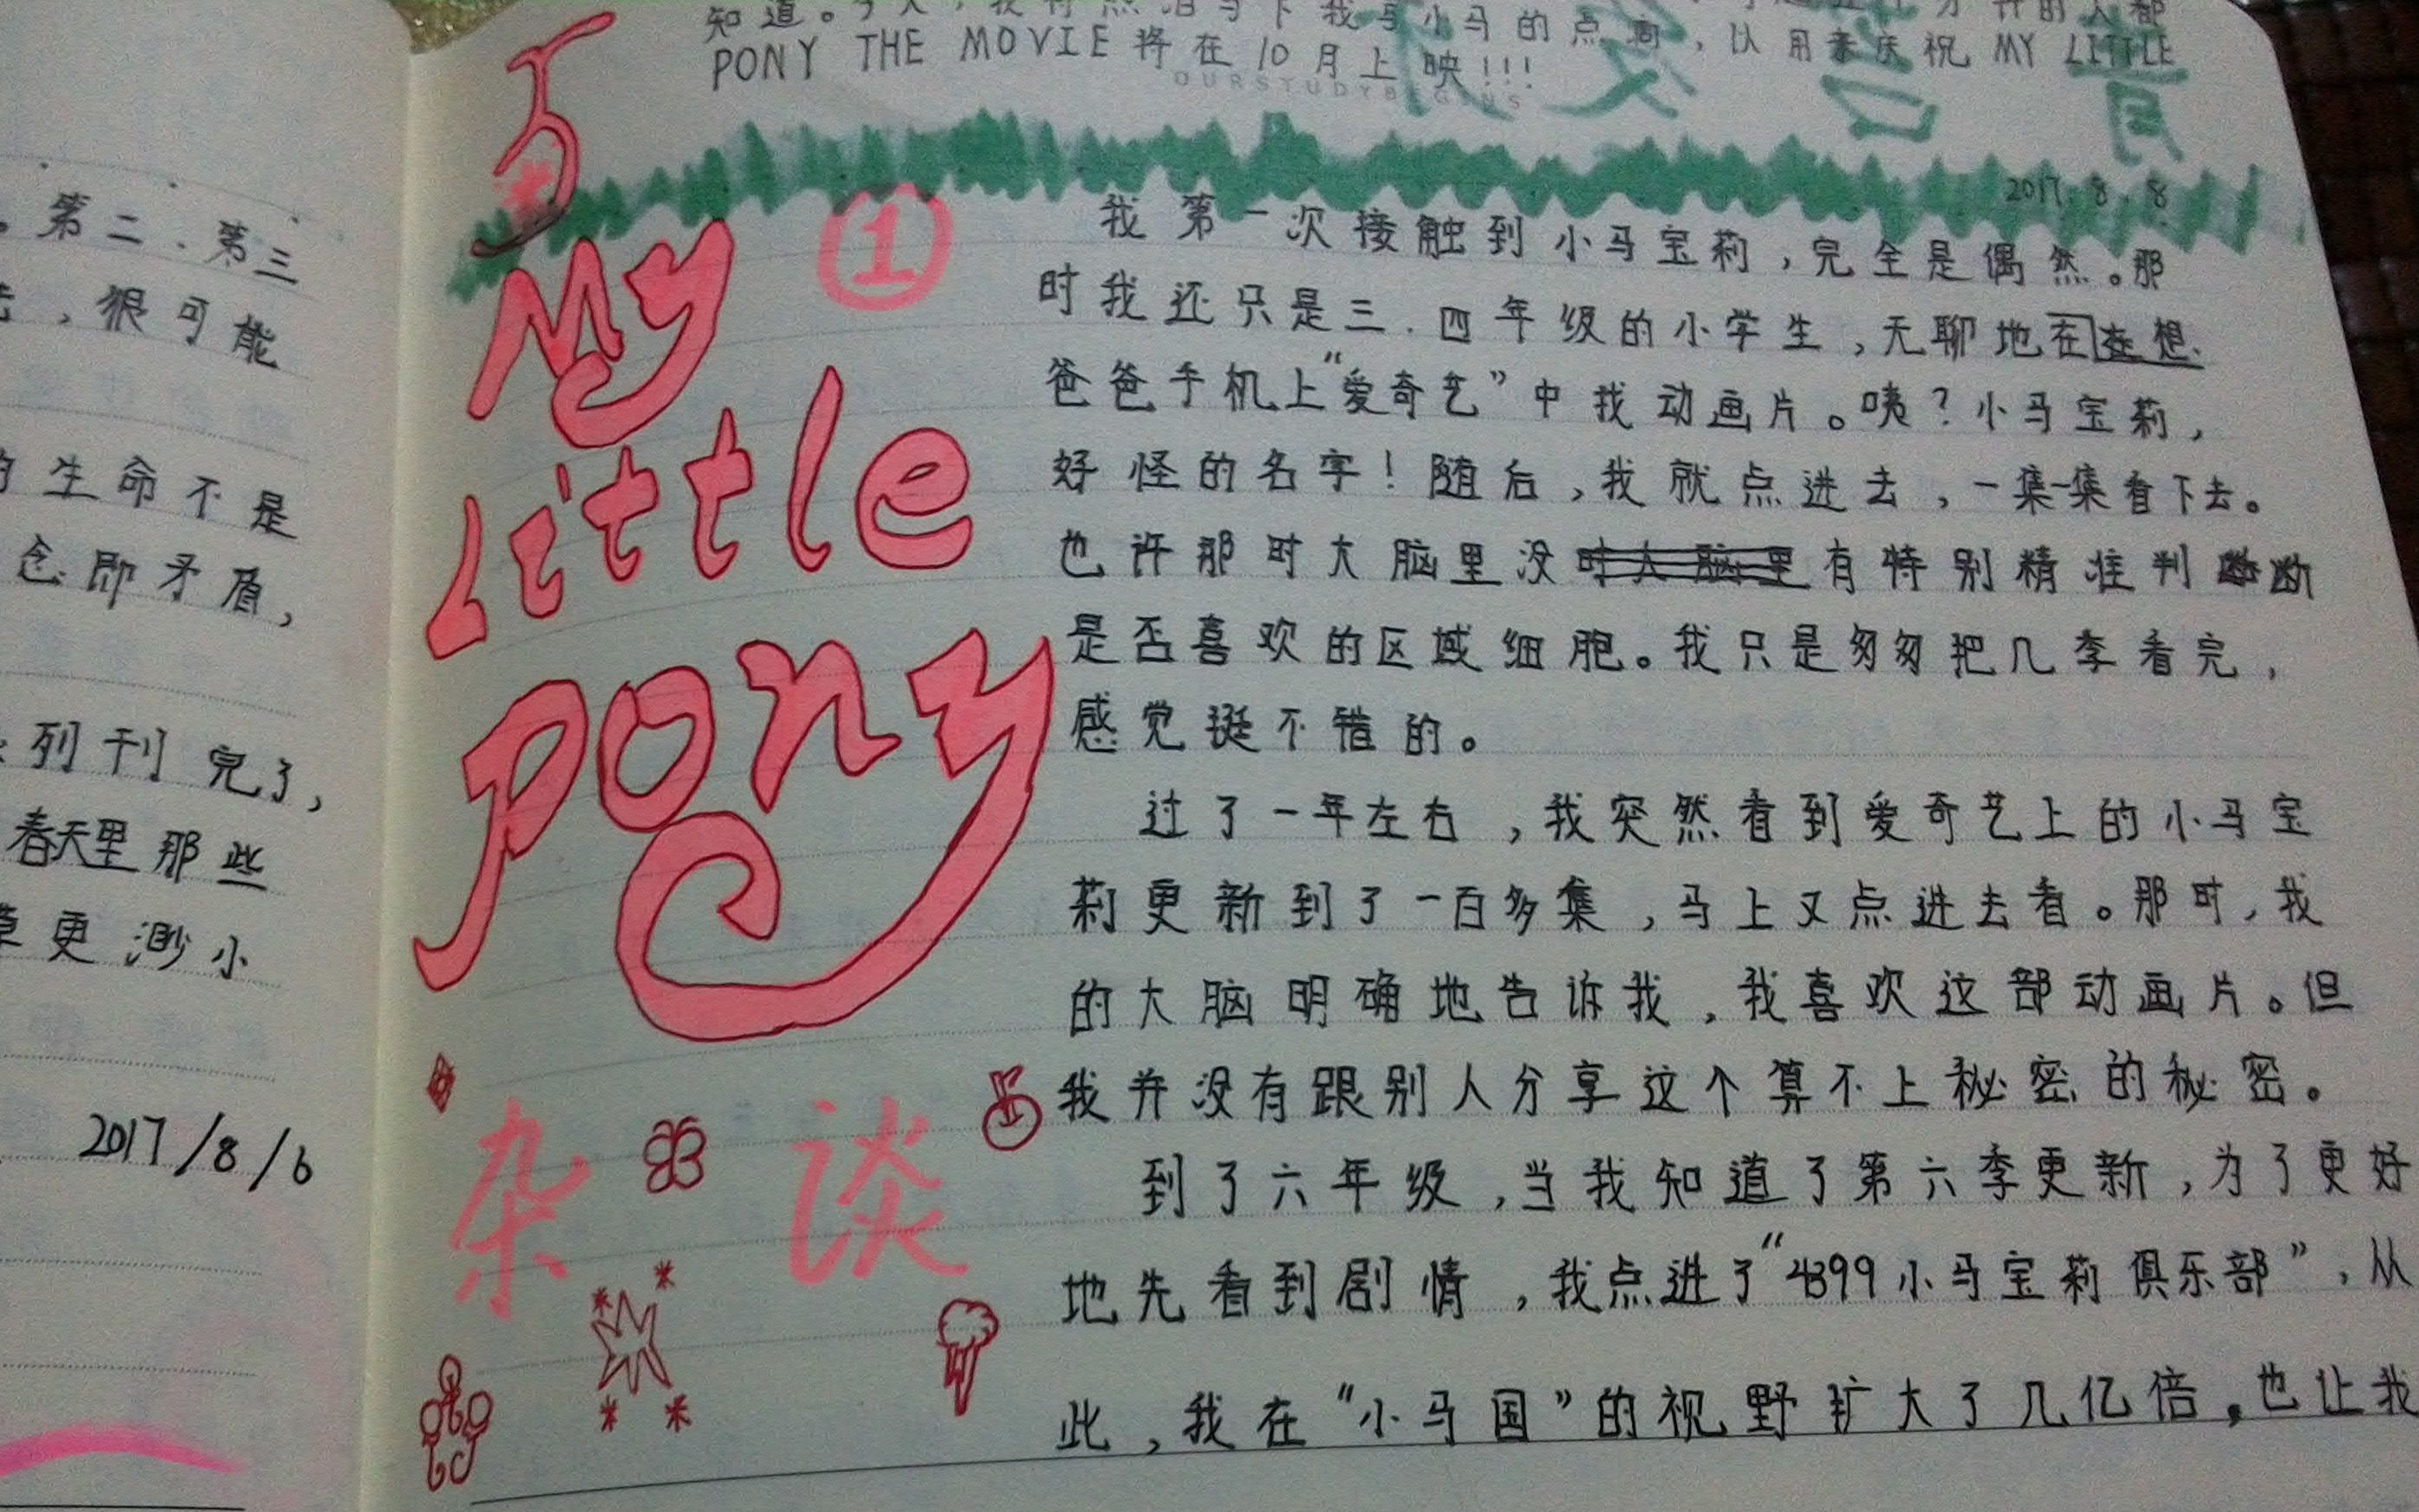 。第二、第三
，很可能
的生命不是
念即矛盾，
列刊完了，
春天里那些
更渺小
2017/8/6
知道。今天，我将点滴写下我与小马的点滴，以用来庆祝 MY LITTLE
PONY THE MOVIE 将在10月上映!!!
OURSTUDYBEGINS
2017.8.8
My
Little
Pony
①
杂谈
我第一次接触到小马宝莉，完全是偶然。那
时我还只是三、四年级的小学生，无聊地在在想
爸爸手机上“爱奇艺”中找动画片。咦？小马宝莉，
好怪的名字！随后，我就点进去，一集一集看下去。
也许那时大脑里没时大脑里有特别精准判断
是否喜欢的区域细胞。我只是匆匆把几季看完，
感觉挺不错的。
过了一年左右，我突然看到爱奇艺上的小马宝
莉更新到了一百多集，马上又点进去看。那时，我
的大脑明确地告诉我，我喜欢这部动画片。但
我并没有跟别人分享这个算不上秘密的秘密。
到了六年级，当我知道了第六季更新，为了更好
地先看到剧情，我点进了“4399小马宝莉俱乐部”，从
此，我在“小马国”的视野扩大了几亿倍，也让我